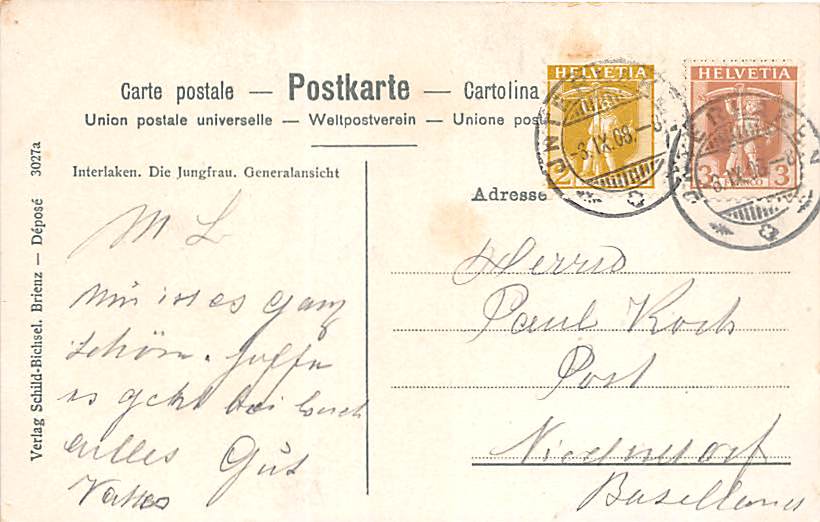 Carte postale — Postkarte — Cartolina
Union postale universelle — Weltpostverein — Unione post
Interlaken. Die Jungfrau. Generalansicht
Verlag Schild-Bichsel. Brienz — Déposé 3027a
HELVETIA
2
HELVETIA
3 FRANCO 3
UNTER
-3.IX.08.-8
Adresse
M L
ganz
schön. hoffe
es geht bei Euch
alles Gut
Herrn
Paul Koch
Post
Niederdorf
Baselland